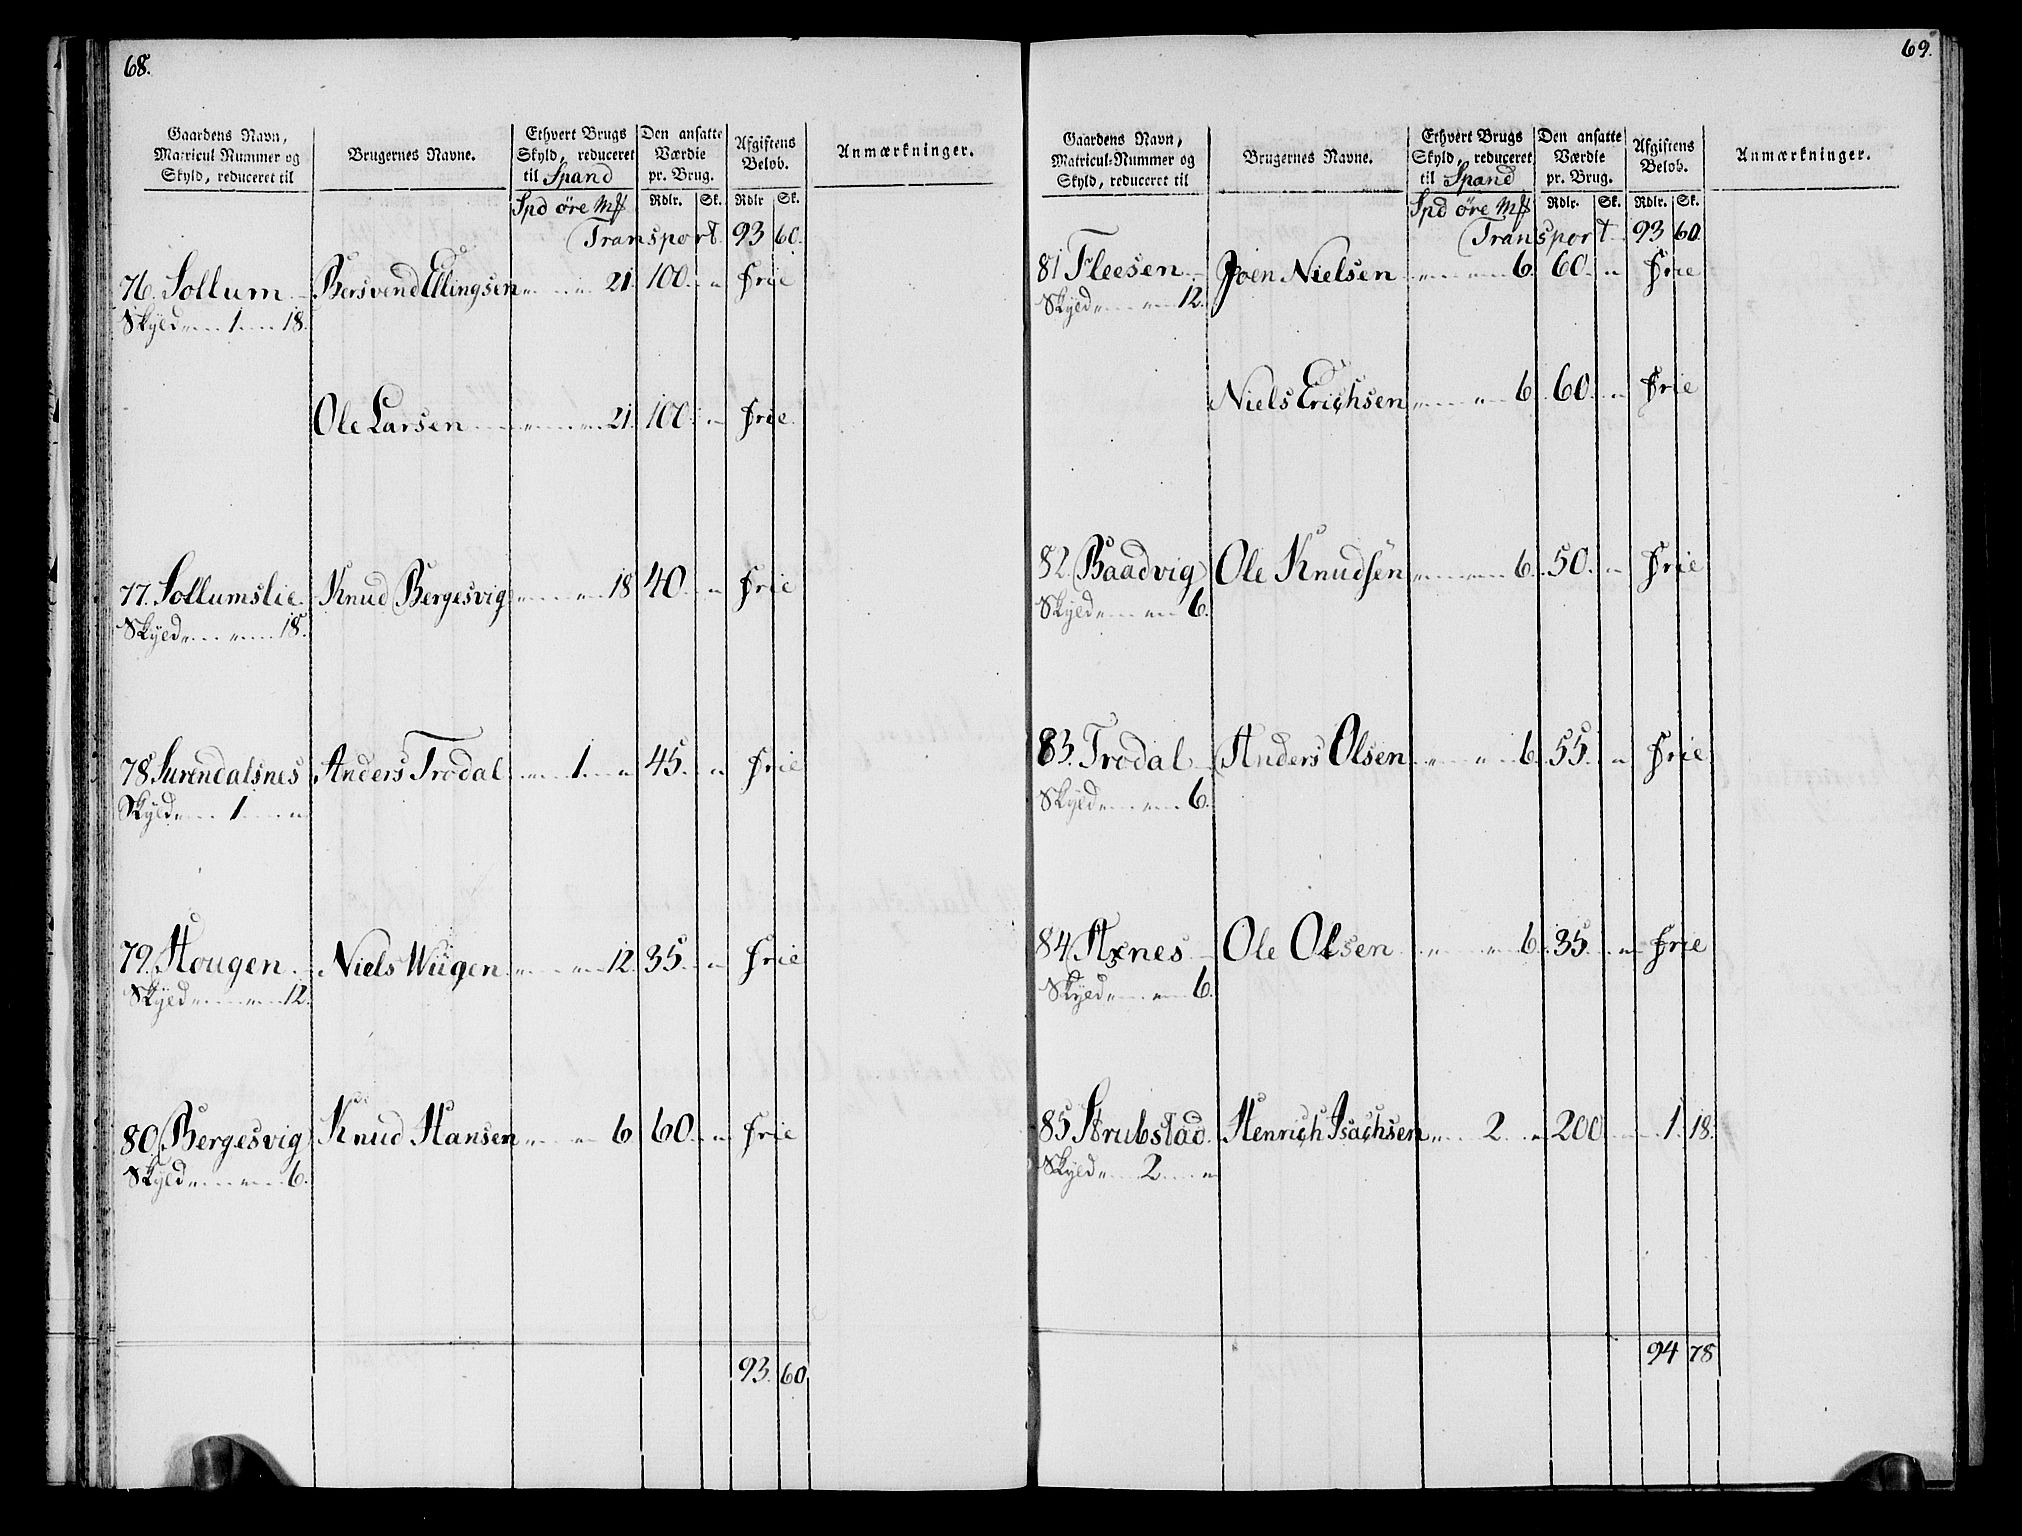 68.
Gaardens Navn, Matricul Nummer og Skyld, reduceret til | Brugernes Navne. | Ethvert Brugs Skyld, reduceret til Spand | Den ansatte Værdie pr. Brug. | Afgiftens Beløb. | Anmærkninger.
Spd øre Mk | Rdlr. Sk. | Rdlr Sk.
Transport 93 60.
76. Sollum Bersvend Ellingsen " " 21. 100. " frie
Skyld " 1 18.
Ole Larsen " " 21. 100. " frie
77. Sollumslie Knud Bergesvig " " 18 40. " frie
Skyld " " 18.
78. Surendalsnes Anders Trodal " 1. " 45. " frie
Skyld " 1 "
79. Hougen Niels Wiigen " " 12. 35. " frie
Skyld " " 12.
80. Bergesvig Knud Hansen " " 6 60. " frie
Skyld " " 6.
93. 60
69.
Gaardens Navn, Matricul-Nummer og Skyld, reduceret til | Brugernes Navne. | Ethvert Brugs Skyld, reduceret til Spand | Den ansatte Værdie pr. Brug. | Afgiftens Beløb. | Anmærkninger.
Spd øre Mk | Rdlr. Sk. | Rdlr. Sk.
Transport 93 60.
81 Fleesen Joen Nielsen " " 6. 60. " frie
Skyld " " 12.
Niels Erichsen " " 6 60. " frie
82. Baadvig Ole Knudsen " " 6. 50. " frie
Skyld " " 6.
83. Trodal Anders Olsen " " 6. 55. " frie
Skyld " " 6.
84. Axnes Ole Olsen " " 6. 35. " frie
Skyld " " 6.
85 Strubstad Henrich Isachsen " 2. " 200 1. 18.
Skyld " 2. "
94 78